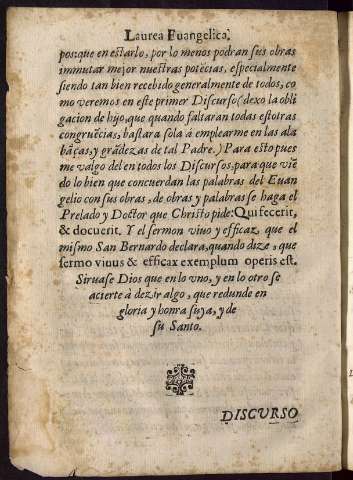 Laurea Euangelica.
porque en estarlo, por lo menos podran sus obras
immutar mejor nuestras potẽcias, especialmente
siendo tan bien recebido generalmente de todos, co
mo veremos en este primer Discurso (dexo la obli
gacion de hijo, que quando faltaran todas estotras
congruẽcias, bastara sola à emplearme en las ala
bãças, y grãdezas de tal Padre.) Para esto pues
me valgo del en todos los Discursos, para que viẽ
do lo bien que concuerdan las palabras del Euan
gelio con sus obras, de obras y palabras se haga el
Prelado y Doctor que Christo pide: Qui fecerit,
& docuerit. Y el sermon viuo y efficaz, que el
mismo San Bernardo declara, quando dize, que
sermo viuus & efficax exemplum operis est.
Siruase Dios que en lo vno, y en lo otro se
acierte à dezir algo, que redunde en
gloria y honra suya, y de
su Santo.
DISCURSO